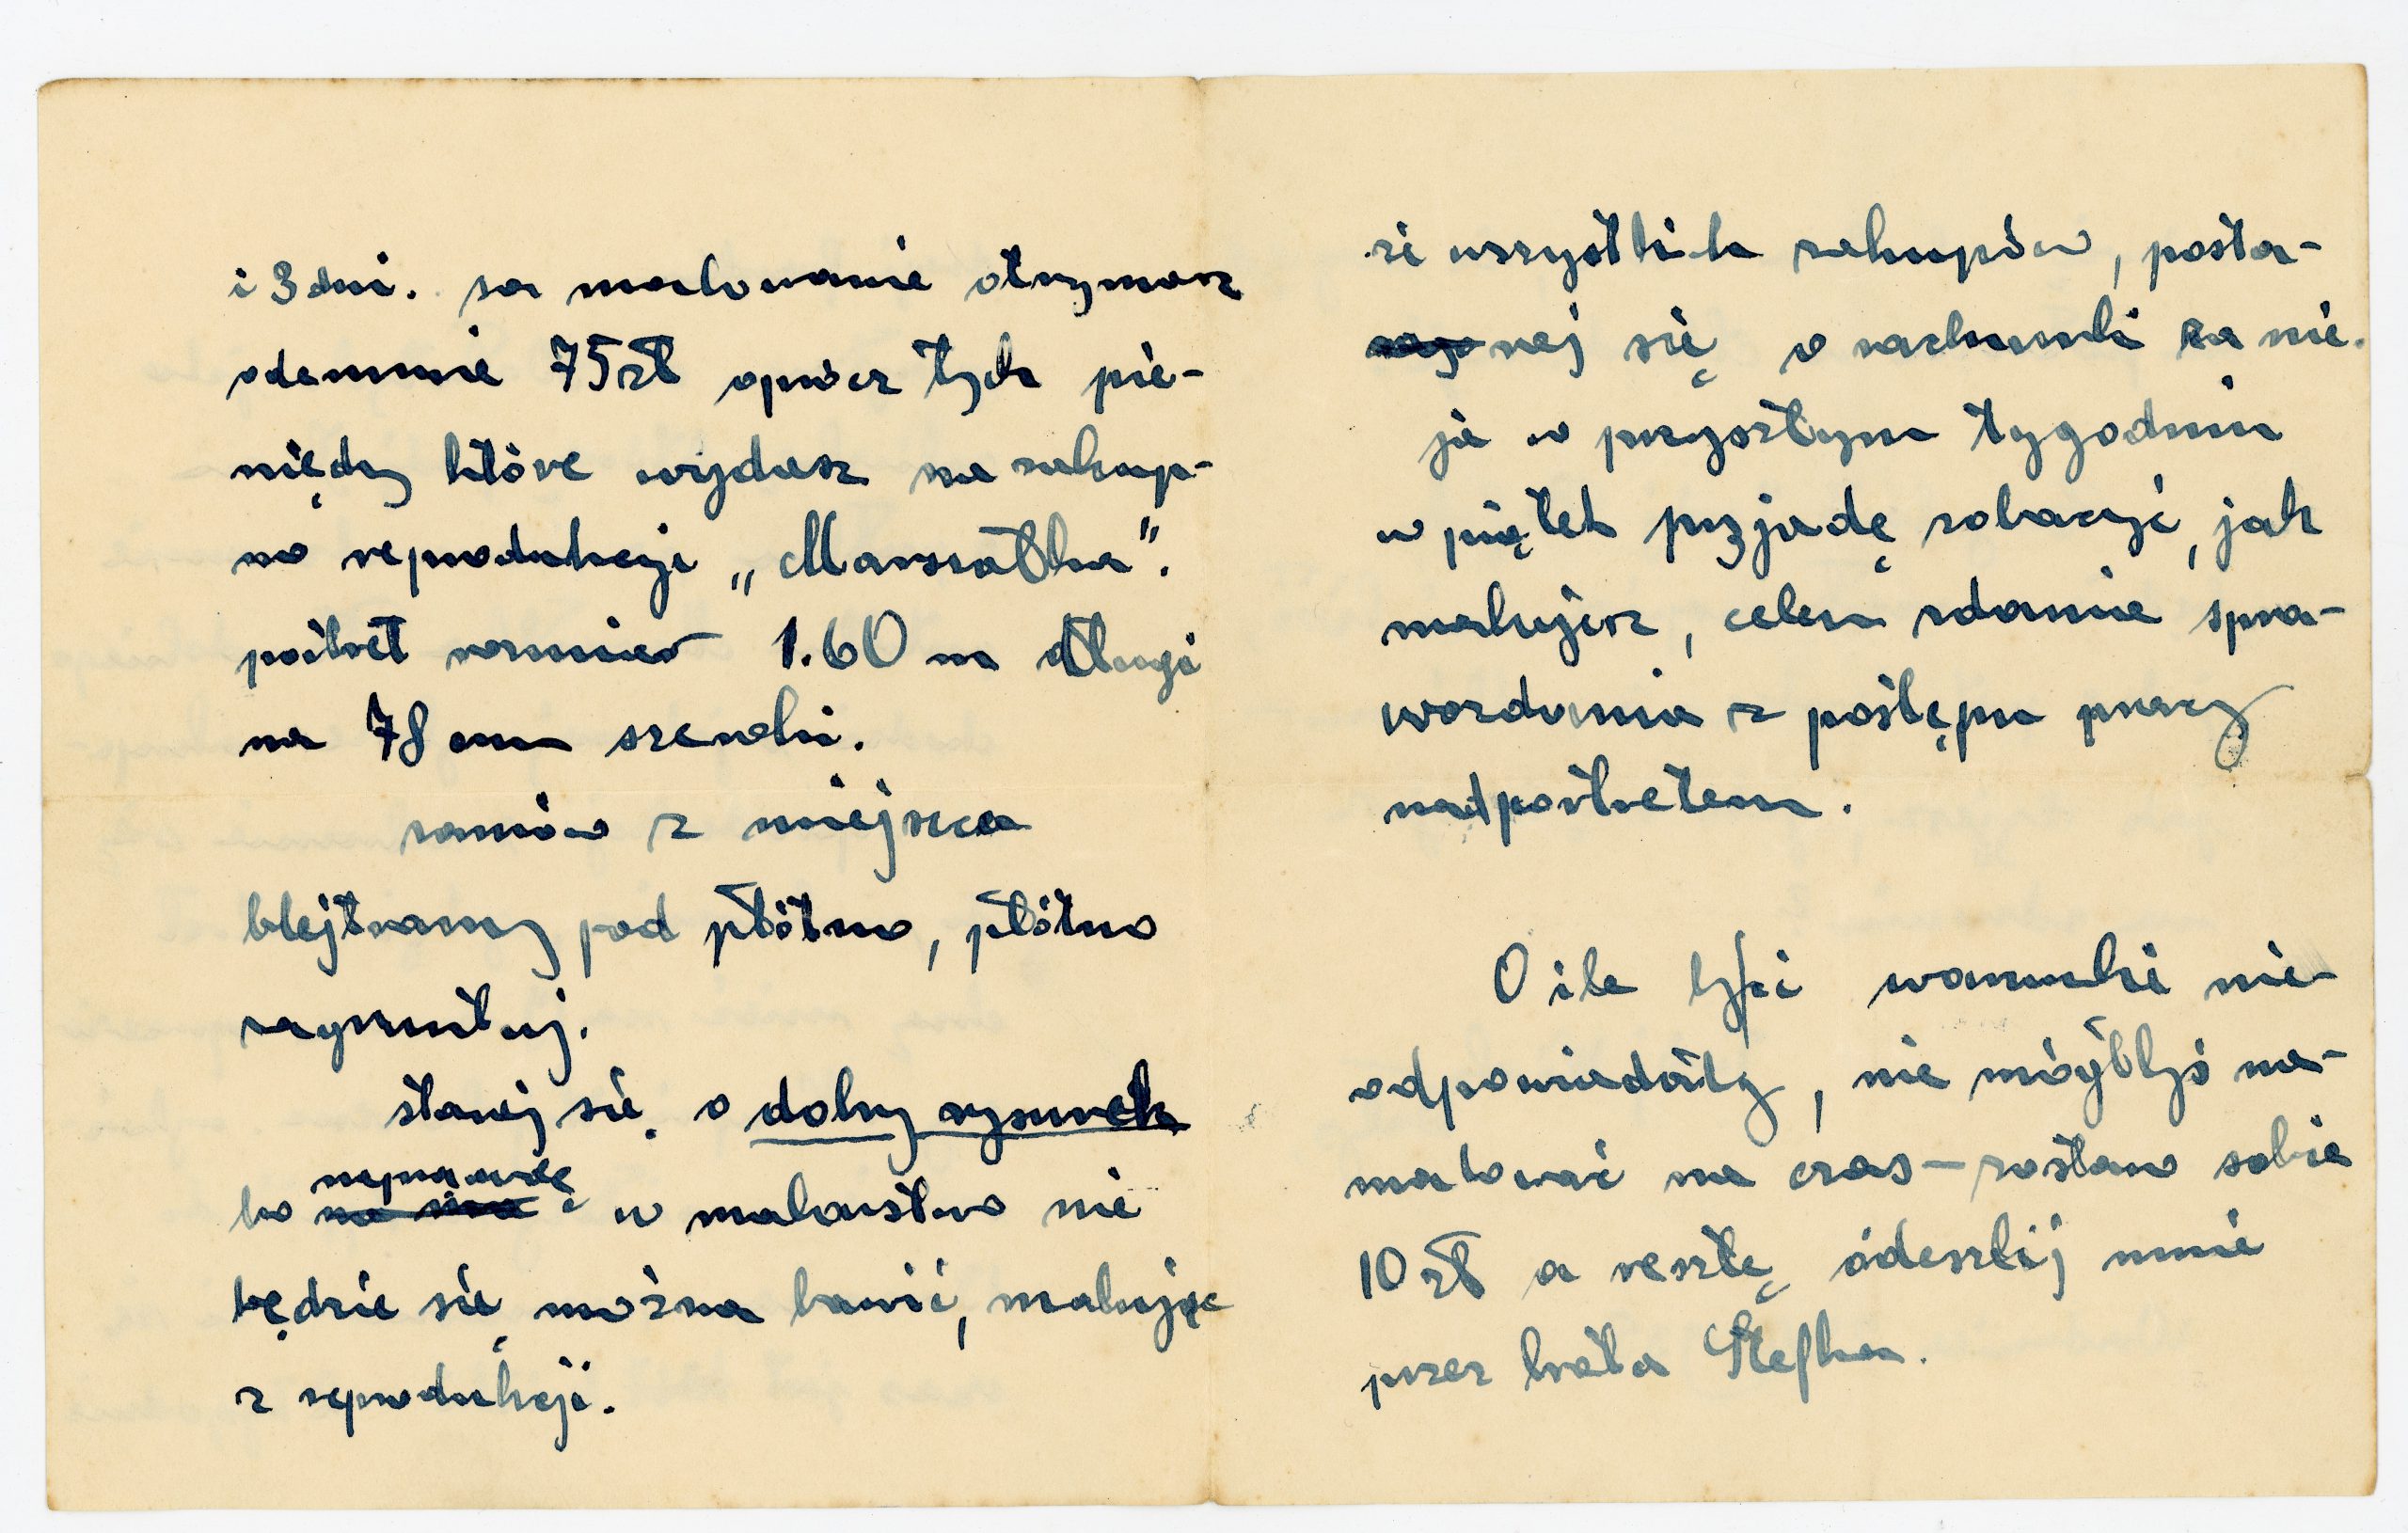 i 3 dni. za malowanie otrzymasz
odemnie 75 zł oprócz tych pie-
niędzy które wydasz na zakup-
no reprodukcji „Marszałka".
portret rozmiar 1.60 m długi
na 78 cm szeroki.
zamów z miejsca
blejtramy pod płótno, płótno
zagruntuj.
staraj się o dobry rysunek
bo naprawdę w malarstwo nie
będzie się można bawić, malując
z reprodukcji.
ze wszystkich zakupów, posta-
raj się o rachunki za nie.
ja w przyszłym tygodniu
w piątek przyjadę zobaczyć, jak
malujesz, celem zdania spra-
wozdania z postępu pracy
nad portretem.
O ile by Ci warunki nie
odpowiadały, nie mógłbyś na-
malować na czas – zostaw sobie
10 zł a resztę odeszlij mnie
przez brata Stefka.